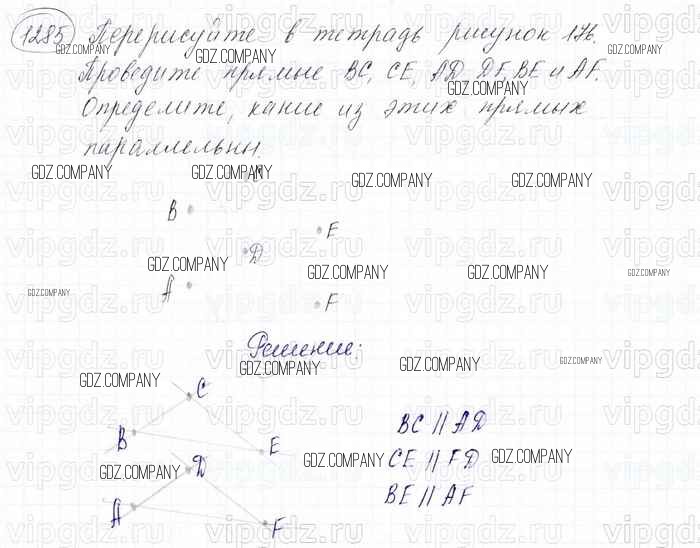 1285 Перерисуйте в тетрадь рисунок 176.
Проведите прямые BC, CE, AD, DF, BE и AF.
Определите, какие из этих прямых
параллельны.
C
B
E
D
A
F
Решение:
C
B
E
D
A
F
BC || AD
CE || FD
BE || AF
GDZ.COMPANY
vipgdz.ru